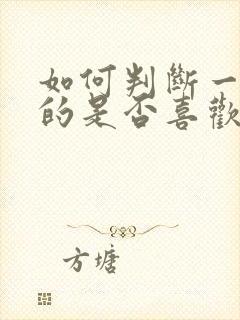 如何判斷一
的是否喜歡
方塘